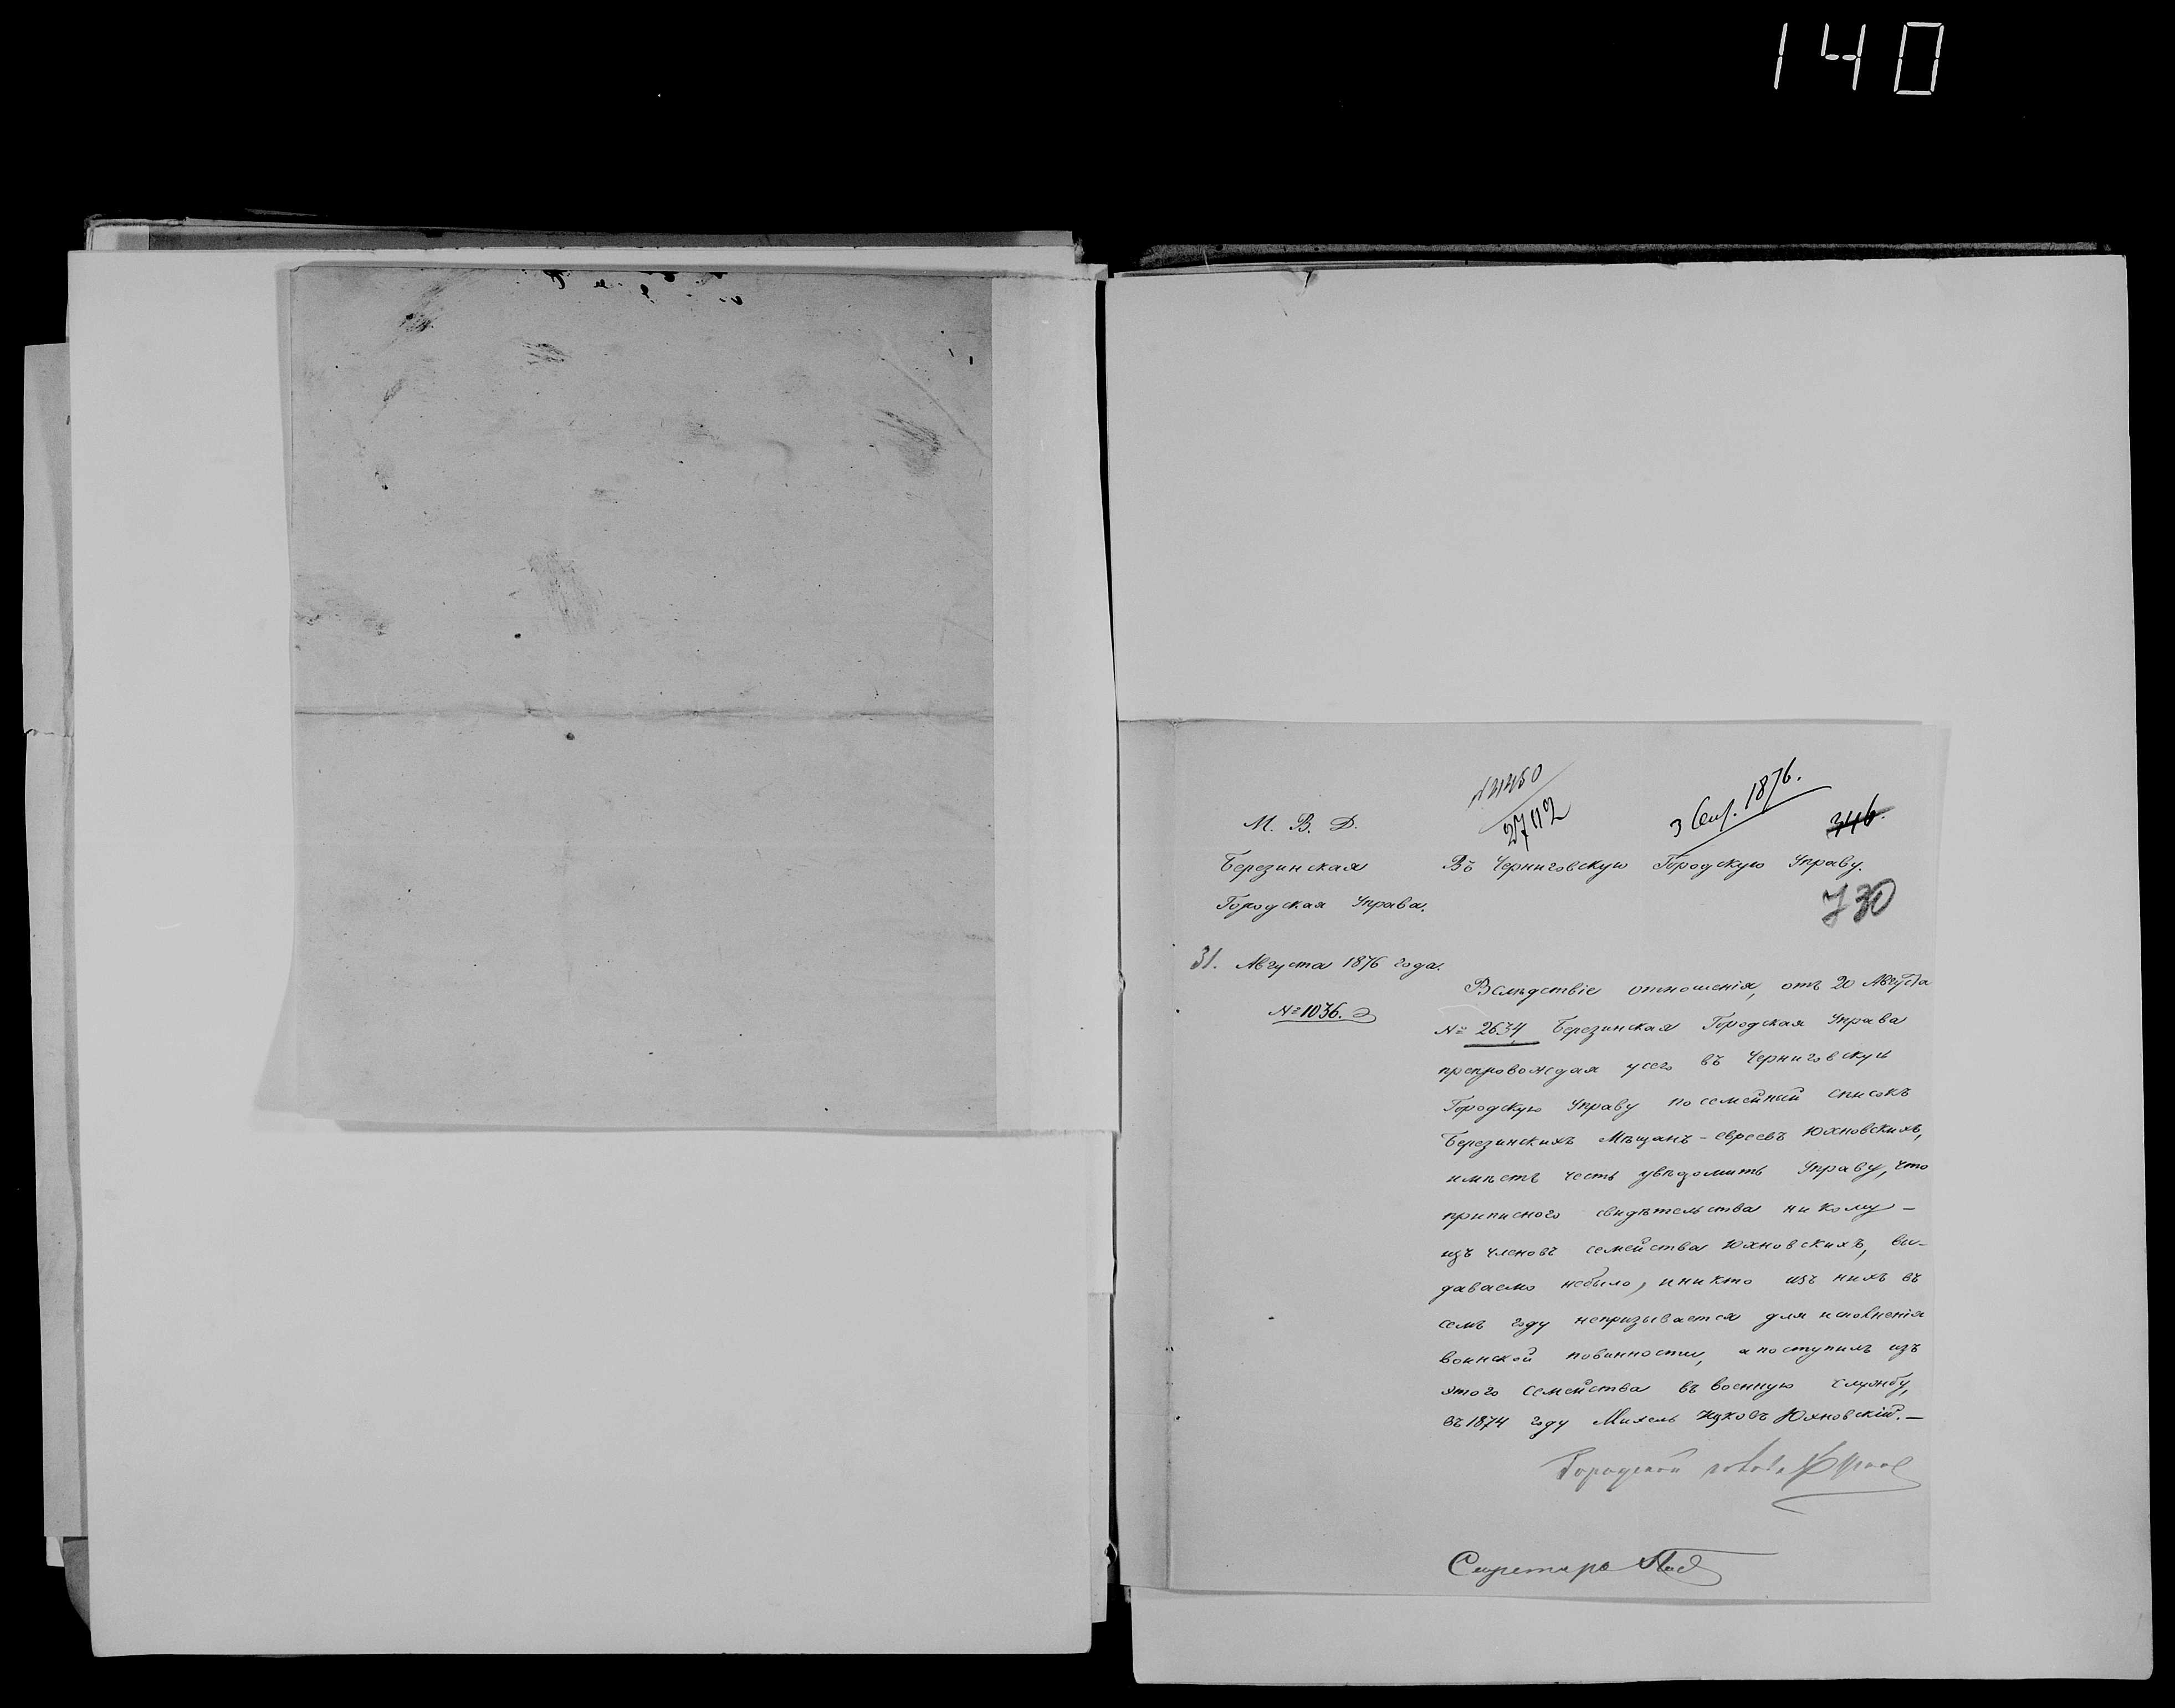 140
№ 1450
2792
3 Сен. 1876.
346.
М. В. Д.
Березинская
Городская Управа.
31. Августа 1876 года.
№ 1036.
Въ Черниговскую Городскую Управу.
730
Вслѣдствіе отношенія, отъ 20 Августа
№ 2634 Березинская Городская Управа
препровождая у сего въ Черниговскую
Городскую Управу посемейный списокъ
Березинскихъ Мѣщанъ-евреевъ Юхновскихъ,
имѣетъ честь увѣдомить Управу, что
приписного свидѣтельства никому –
изъ членовъ семейства Юхновскихъ, вы-
даваемо небыло, и никто изъ нихъ въ
семъ году непризывается для исполненія
воинской повинности, а поступилъ изъ
этого семейства въ военную службу,
въ 1874 году Михель Ицковъ Юхновскій. –
Городской голова
Секретарь